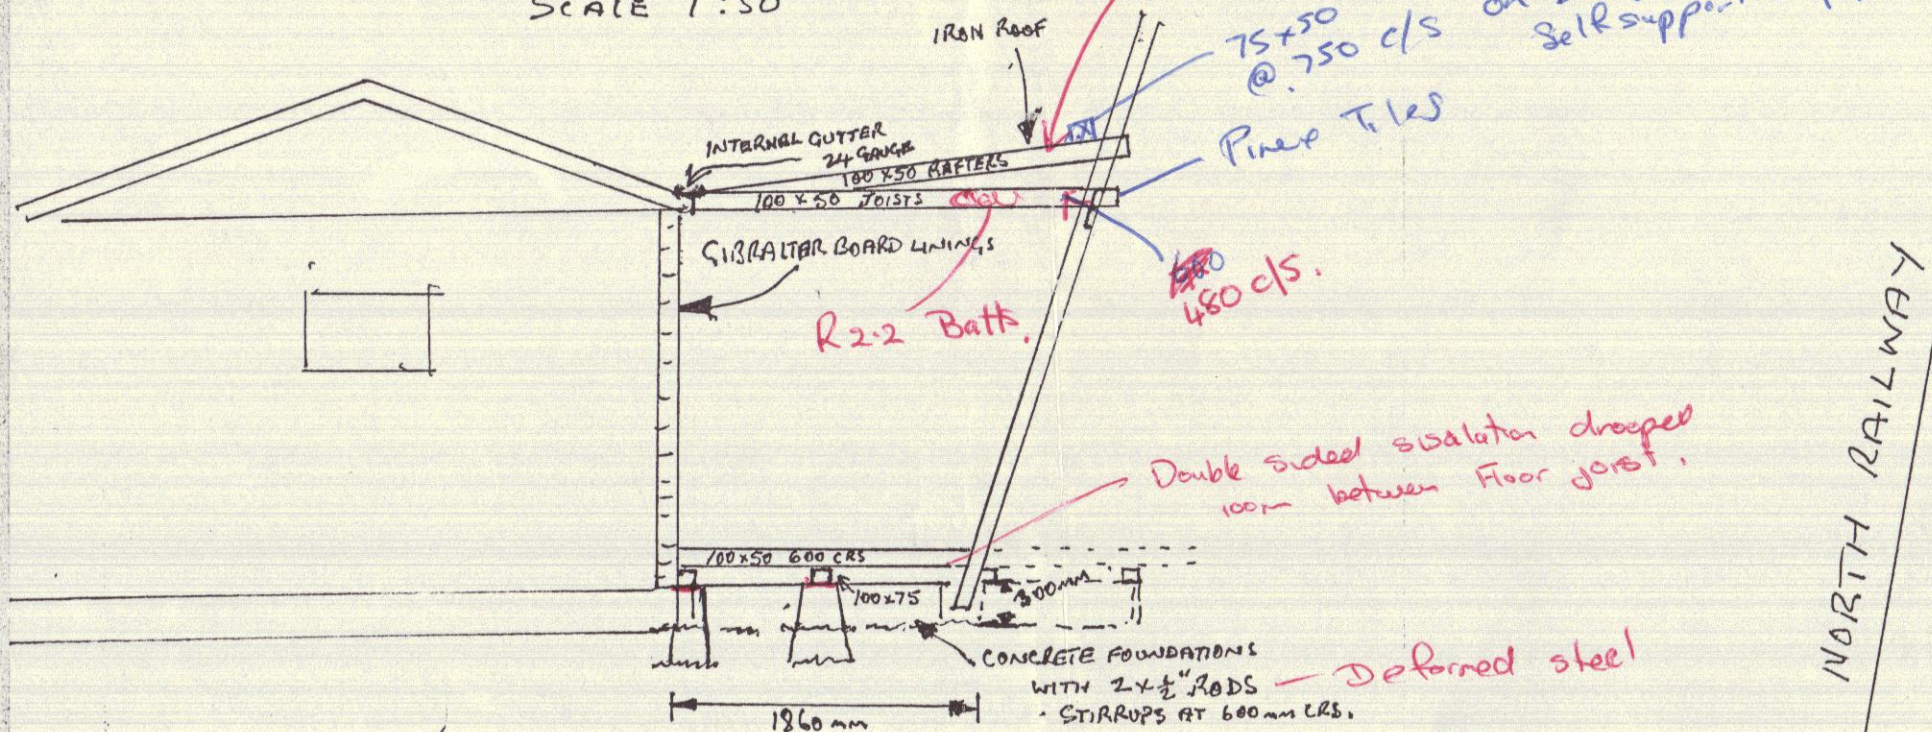 SCALE 1:50
IRON ROOF
75+50
@ 750 c/s
on
Self support
Pinex Tiles
INTERNAL GUTTER
24 GAUGE
100 X 50 RAFTERS
100 X 50 JOISTS
GIBRALTER BOARD LININGS
480 c/s.
R 2.2 Batts.
NORTH RAILWAY
Double sided sisalation drooped
100m between Floor joist.
100x50 600 CRS
100x75
300mm
CONCRETE FOUNDATIONS
WITH 2x½" RODS
STIRRUPS AT 600mm CRS.
Deformed steel
1860mm